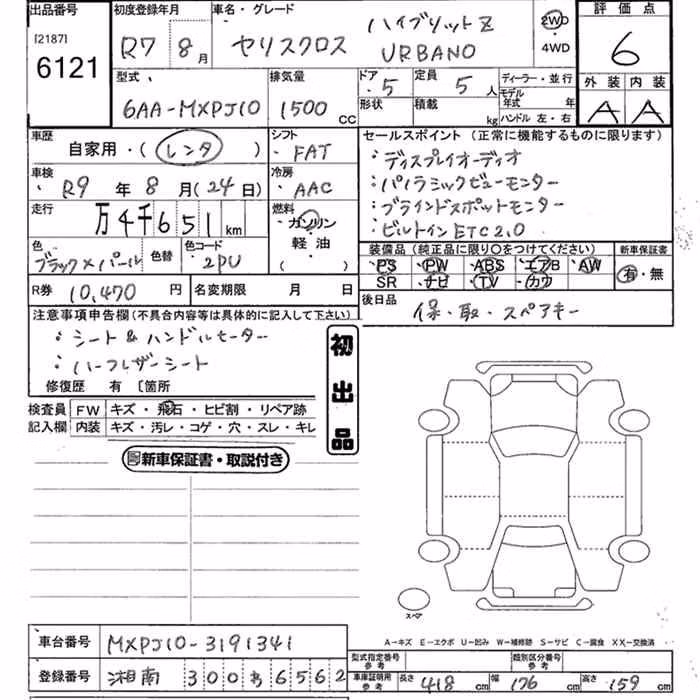 出品番号 初度登録年月 車名・グレード 評価点
[2187] 6121 R7 8月 ヤリスクロス ハイブリットZ URBANO 2WD・4WD 6
型式 排気量 ドア・5 定員 5人 ディーラー・並行 外装 内装
6AA-MXPJ10 1500cc 形状 積載 kg モデル年式 年 ハンドル 左・右 A A
車歴 シフト セールスポイント(正常に機能するものに限ります)
自家用・(レンタ) FAT ・ディスプレイオーディオ
車検 冷房 ・パノラミックビューモニター
R9年8月(24日) AAC ・ブラインドスポットモニター
走行 燃料 ・ビルトインETC2.0
万4千651km ガソリン
軽油
( )
色 色替 色コード 装備品(純正品に限り○をつけてください) 新車保証書
ブラック×パール 2PU PS PW ABS エアB AW 有・無
SR ナビ TV カワ
R券 10,470円 名変期限 月 日 後日品 保・取・スペアキー
注意事項申告欄(不具合内容等は具体的に記入して下さい)
・シート&ハンドルヒーター
・ハーフレザーシート
修復歴 有 〔箇所
初出品
検査員記入欄 FW キズ・飛石・ヒビ割・リペア跡
内装 キズ・汚レ・コゲ・穴・スレ・キレ
新車保証書・取説付き
スペア
A-キズ E-エクボ U-凹み W-補修跡 S-サビ C-腐食 XX-交換済
車台番号 MXPJ10-3191341 型式指定番号 参考 類別区分番号 参考
登録番号 湘南 300 6562 車庫証明用参考 長さ 418cm 幅 176cm 高さ 159cm